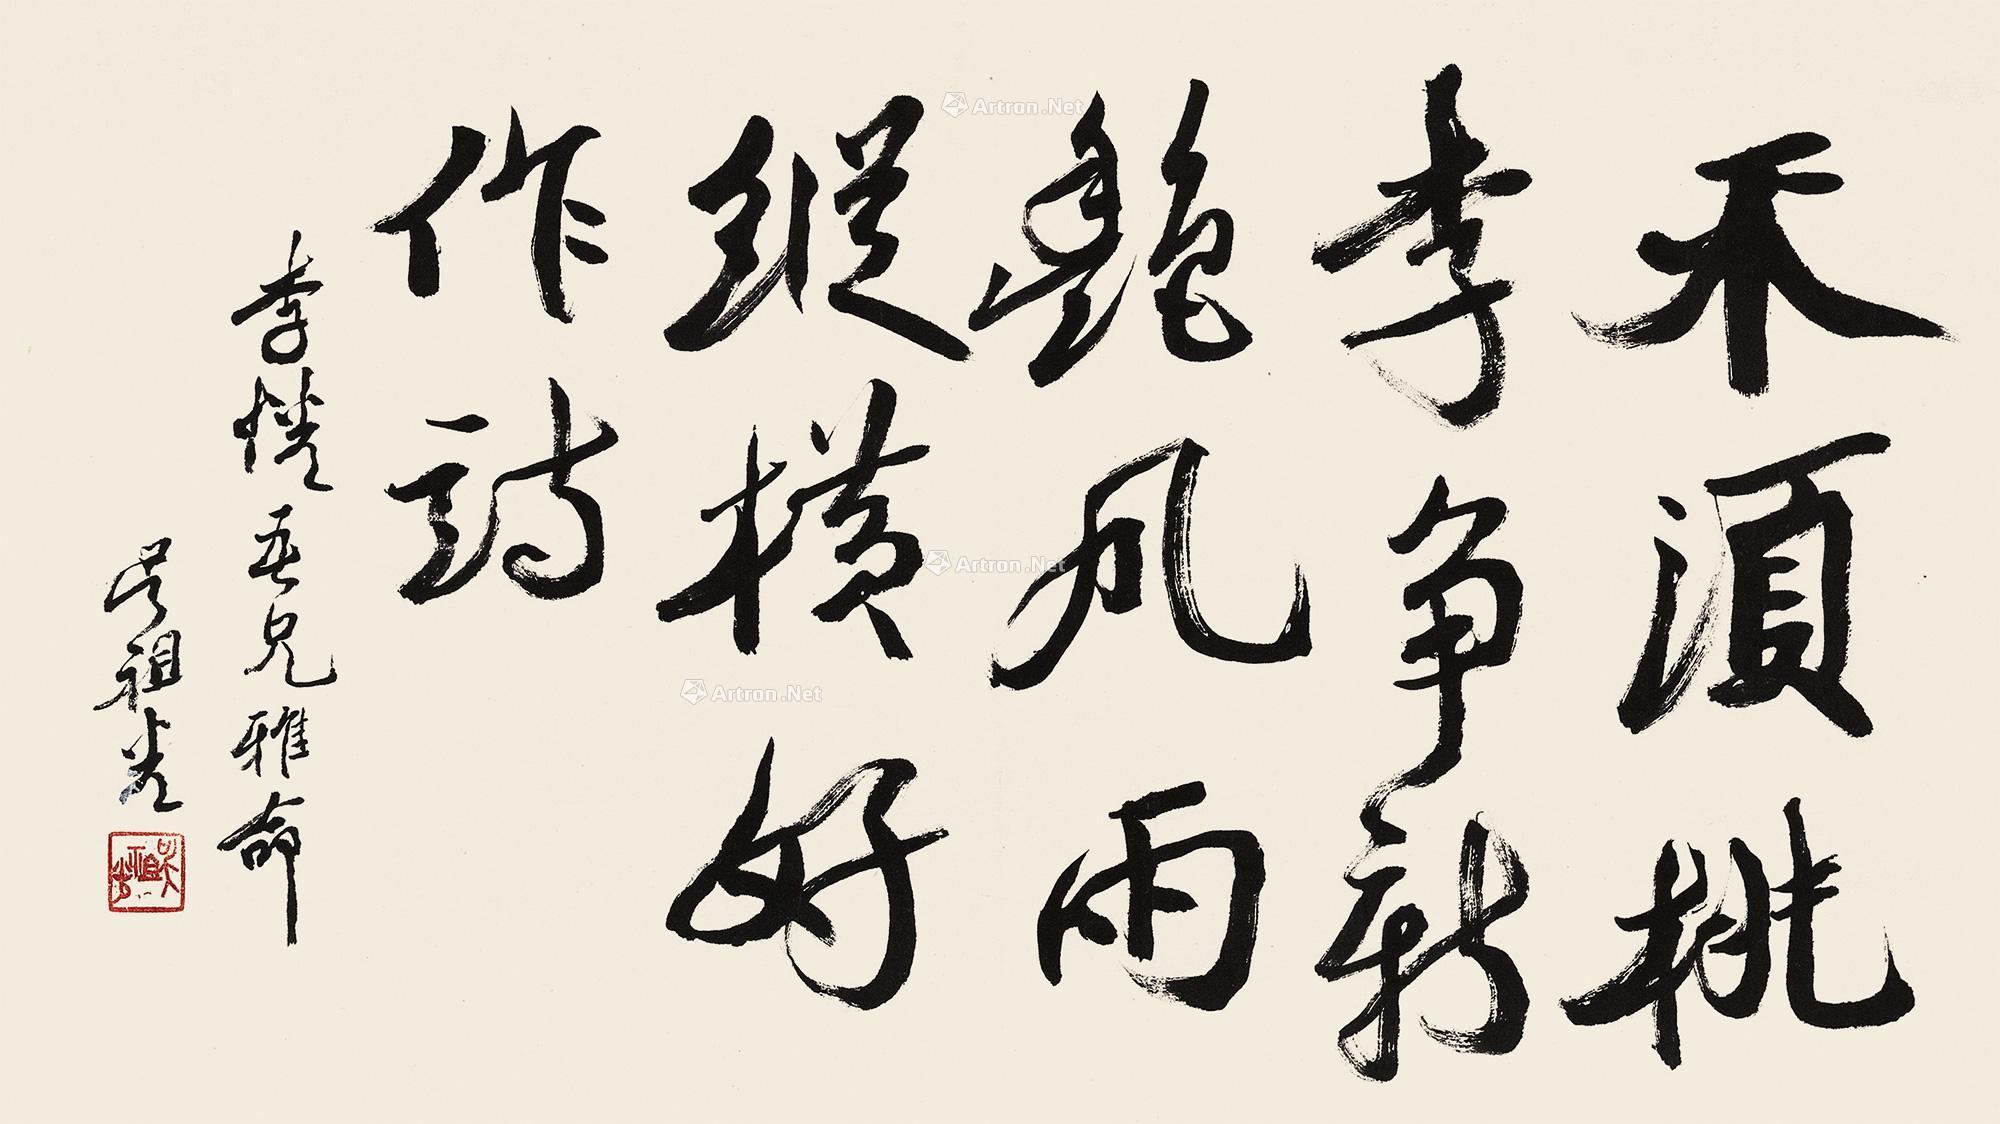 不須桃
李争新
艷風雨
縱橫好
作詩
李 吾兄雅命
吴祖光
吴祖光
Artron.Net
Artron.Net
Artron.Net